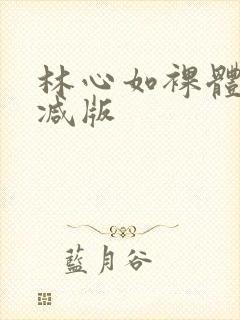 林心如裸體
减版
藍月谷